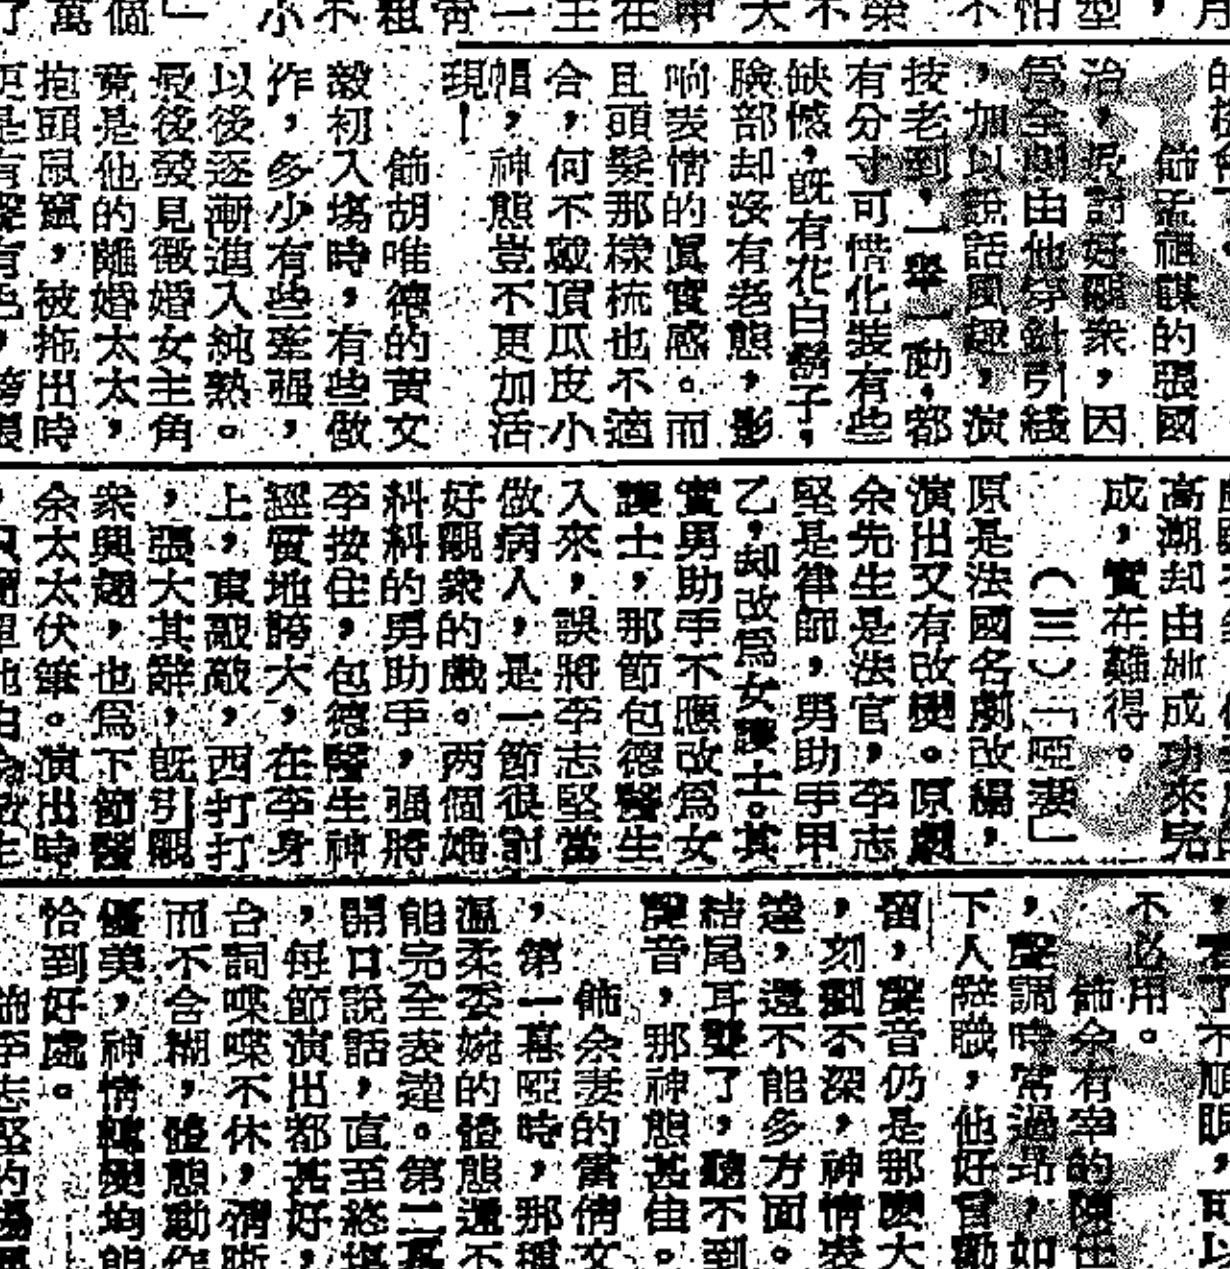 飾孟祖謀的張國
治,很討好觀衆,因
爲全劇由他穿針引綫
,加以說話風趣,演
按老到,一舉一動,都
有分寸可惜化裝有些
缺憾,旣有花白鬍子,
臉部却沒有老態,影
响表情的眞實感。而
且頭髮那樣梳也不適
合,何不戴頂瓜皮小
帽,神態豈不更加活
現!
飾胡唯德的黃文
毅初入塲時,有些做
作,多少有些牽强,
以後逐漸進入純熟。
最後發見徵婚女主角
竟是他的離婚太太,
抱頭鼠竄,被拖出時
高潮却由她成功來完
成,實在難得。
(三)「啞妻」
原是法國名劇改編,
演出又有改變。原劇
余先生是法官,李志
堅是律師,男助手甲
乙,却改爲女護士。其
實男助手不應改爲女
護士,那節包德醫生
入來,誤將李志堅當
做病人,是一節很討
好觀衆的戲。两個雄
糾糾的男助手,强將
李按住,包德醫生神
經質地誇大,在李身
上,東敲敲,西打打
,張大其辭,旣引觀
衆興趣,也爲下節醫
余太太伏筆。演出時
不必用。
飾余有幸的陳任
,聲調時常過昻,如
下人辭職,他好言勸
留,聲音仍是那麽大
,刻劃不深,神情表
達,還不能多方面。
結尾耳聾了,聽不到
聲音,那神態甚佳。
飾余妻的雷倩文
,第一幕啞時,那種
溫柔委婉的體態還不
能完全表達。第二幕
開口說話,直至終塲
,每節演出都甚好,
台詞喋喋不休,清晰
而不含糊,體態動作
優美,神情轉變均能
恰到好處。